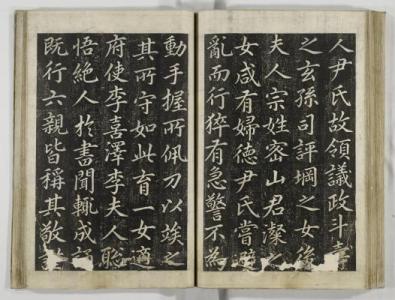 人尹氏故領議政斗壽
之玄孫司評堈之女後
夫人宗姓密山君澯之
女咸有婦德尹氏嘗避
亂而行猝有急警不為
動手握所佩刀以竢之
其所守如此育一女適
府使李喜澤李夫人聡
悟絶人於書聞輒成
既行六親皆稱其敬